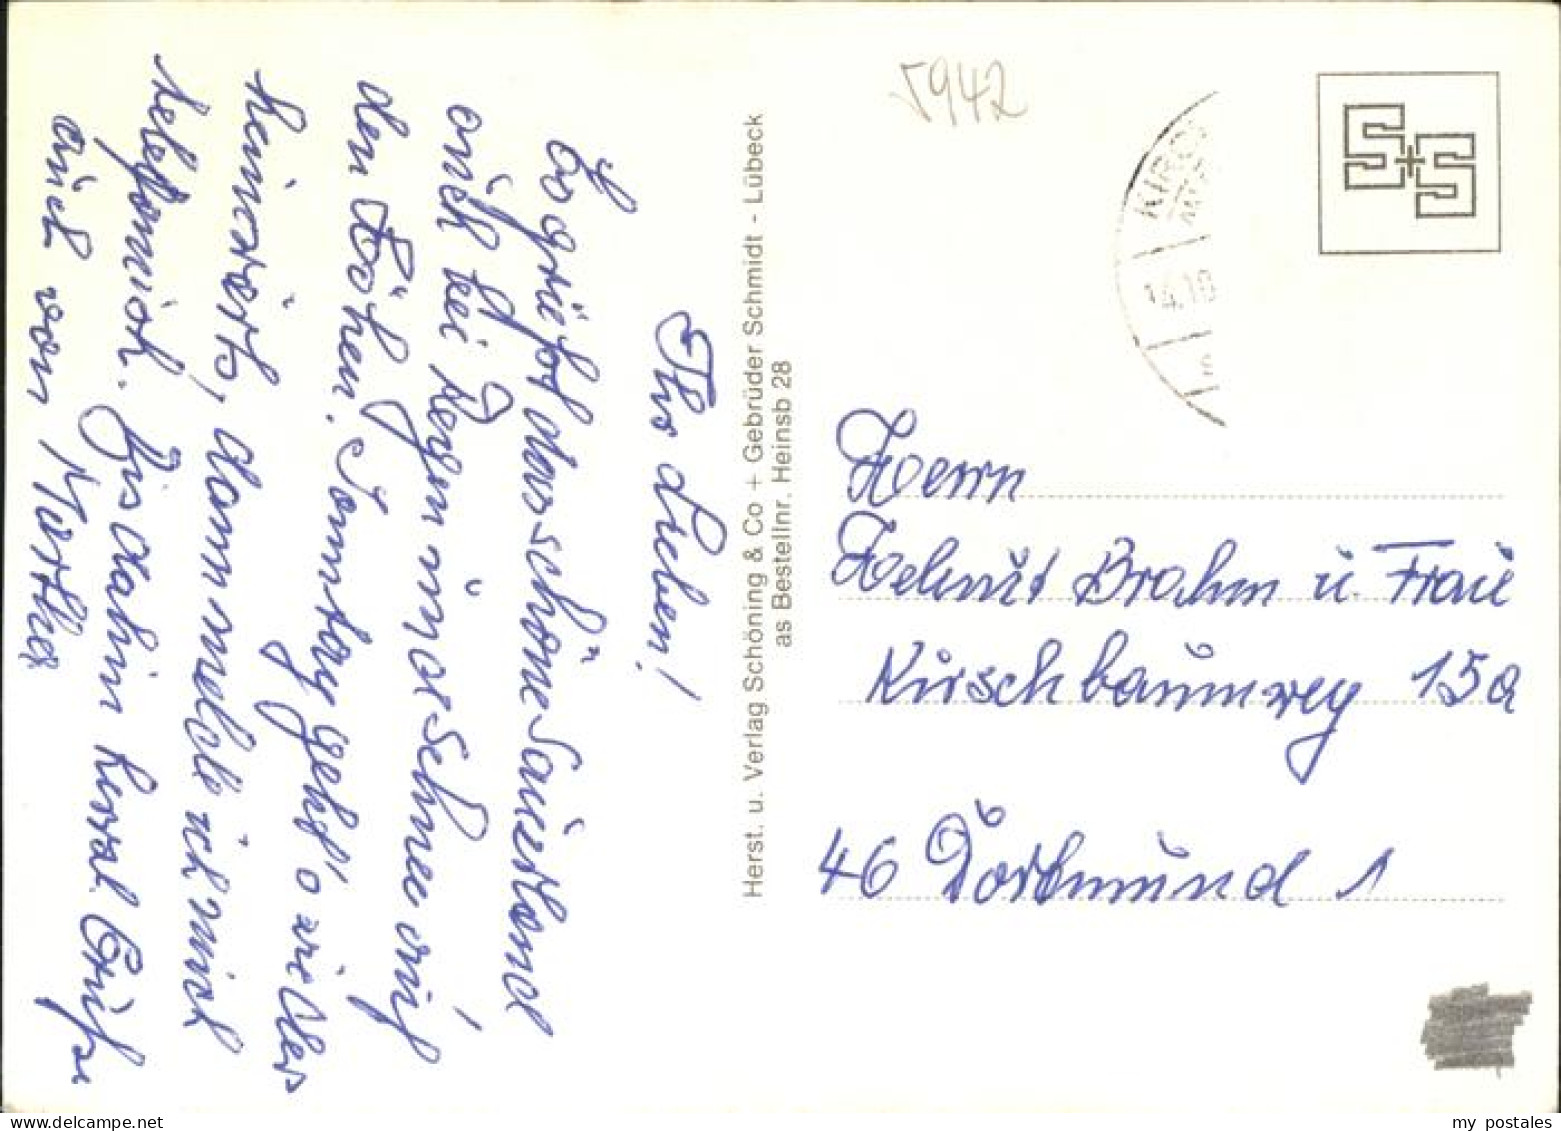 Ihr Lieben!
Es grüßt das schöne Sauerland
auch bei Regen u. Schnee auf
den Höhen. Sonntag geht's wieder
heimwärts, dann melde ich mich
telefonisch. Bis dahin herzl. Grüße
auch von Martha
Herst. u. Verlag Schöning & Co + Gebrüder Schmidt - Lübeck
as Bestellnr. Heinsb 28
5942
KIRCH
14.10
S+S
Herrn
Helmut Brahm u. Frau
Kirschbaumweg 15a
46 Dortmund 1
my postales